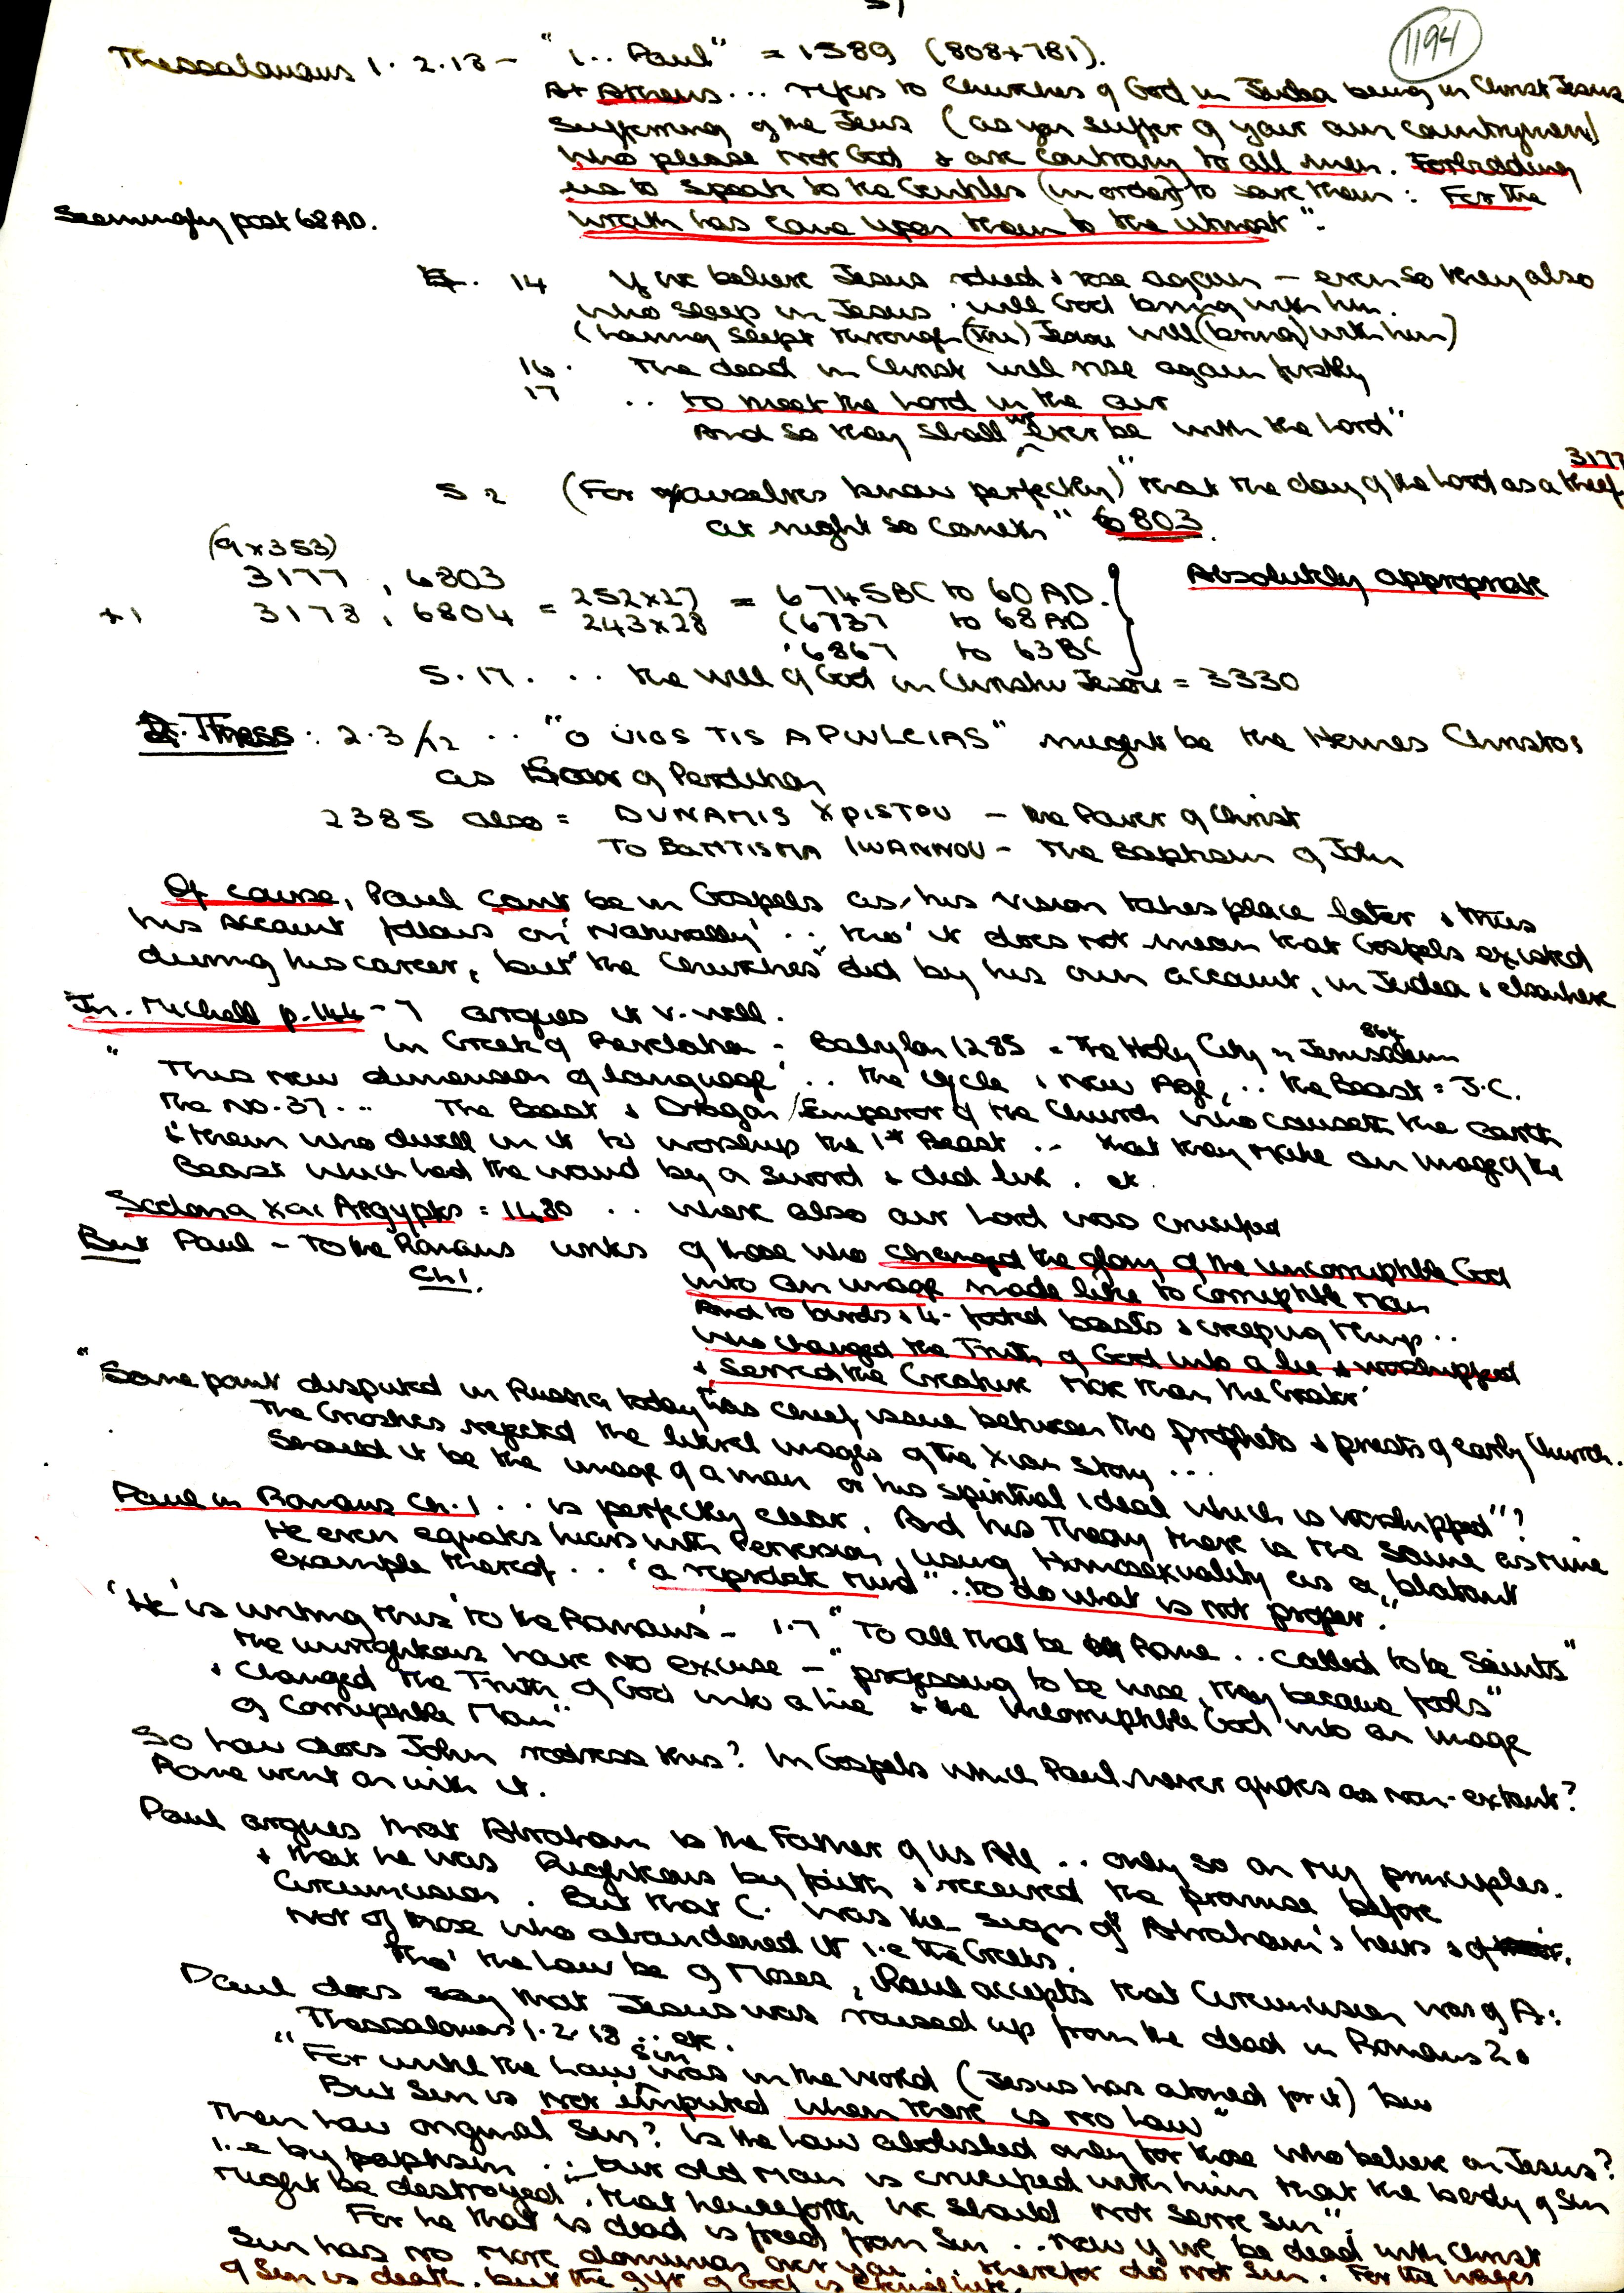 51
1194
Thessalonians 1. 2.18 - "I... Paul" = 1589 (808+781).
At Athens... refers to Churches of God in Judea being in Christ Jesus
suffering of the Jews (as you suffer of your own countrymen)
who please not God & are contrary to all men. Forbidding
us to speak to the Gentiles (in order) to save them: For the
Seemingly post 68 AD.
wrath has come upon them to the utmost".
14 If we believe Jesus died & rose again - even so they also
who sleep in Jesus will God bring with him.
(having slept through (tou) Jesou will (bring) with him)
16. The dead in Christ will rise again firstly
17 .. to meet the Lord in the air
And so they shall we ever be with the Lord"
3177
5 2 (For yourselves know perfectly) "that the day of the Lord as a thief
at night so cometh" 6803.
(9x353)
3177, 6803
Absolutely appropriate
+1 3178, 6804 = 252x27 = 6745BC to 60 AD.
243x28 (6737 to 68 AD
6867 to 63BC
5.17. .. the will of God in Christw Jesou = 3330
2. Thess: 2.3/12 .. "O UIOS TIS APWLEIAS" might be the Hermes Christos
as Son of Perdition
2385 also = DUNAMIS XPISTOU - the Power of Christ
TO BAPTISMA IWANNOU - The Baptism of John
Of course, Paul cant be in Gospels as his vision takes place later & thus
his Account follows on 'Naturally' .. tho' it does not mean that Gospels existed
during his career, but "the Churches" did by his own account, in Judea & elsewhere
Jn. Michell p.144-7 argues it v. well.
In Greek of Revelation - Babylon 1285 = The Holy City = Jerusalem 864
"This new dimension of language" .. the cycle & New Age, .. the Beast = J.C.
the No. 37 ... The Beast & Dragon/Emperor of the Church who causeth the earth
& them who dwell in it to worship the 1st Beast .. that they make an image of the
Beast which had the wound by a sword & did live. etc.
Sodoma kai Aegyptos = 1480 .. where also our Lord was crucified
But Paul - To the Romans writes of those who changed the glory of the uncorruptible God
Ch 1. into an image made like to corruptible man
And to birds & 4-footed beasts & creeping things..
who changed the Truth of God into a lie & worshipped
& served the Creature more than the Creator'
"Same point disputed in Russia today was chief issue between the prophets & priests of early Church.
The Gnostics rejected the literal images of the Xian story ...
Should it be the image of a man or his spiritual ideal which is worshipped"?
Paul in Romans Ch.1 .. is perfectly clear. And his Theory there is the same as mine
He even equates hiers with Perversion, using Homosexuality as a blatant
example thereof .. "a reprobate mind" .. to do what is not proper."
'He is writing this 'to the Romans' - 1.7 "To all that be in Rome .. called to be Saints"
the unrighteous have no excuse - "professing to be wise, they became fools"
& changed the Truth of God into a lie & the incorruptible God into an image
of Corruptible Man"
So how does John redress this? In Gospels which Paul never quotes as non-extant?
Rome went on with it.
Paul argues that Abraham is the Father of us All .. only so on my principles.
& that he was Righteous by faith & received the promise before
Circumcision. But that C. was the sign of Abraham's heirs & of
Not of those who abandoned it i.e the Greeks.
Tho' the Law be of Moses, Paul accepts that Circumcision was of A:
Paul does say that Jesus was raised up from the dead in Romans 2 &
Thessalonians 1.2.18 .. etc.
"For until the Law sin was in the World (Jesus has atoned for it) bu
But Sin is not imputed when there is no law"
Then how original Sin? Is the Law abolished only for those who believe on Jesus?
i.e by baptism .. "our old man is crucified with him that the body of Sin
might be destroyed, that henceforth we should not serve sin".
For he that is dead is freed from Sin .. Now if we be dead with Christ
Sin has no more dominion over you .. therefor do not Sin. For the wages
of Sin is death, but the gift of God is eternal life.